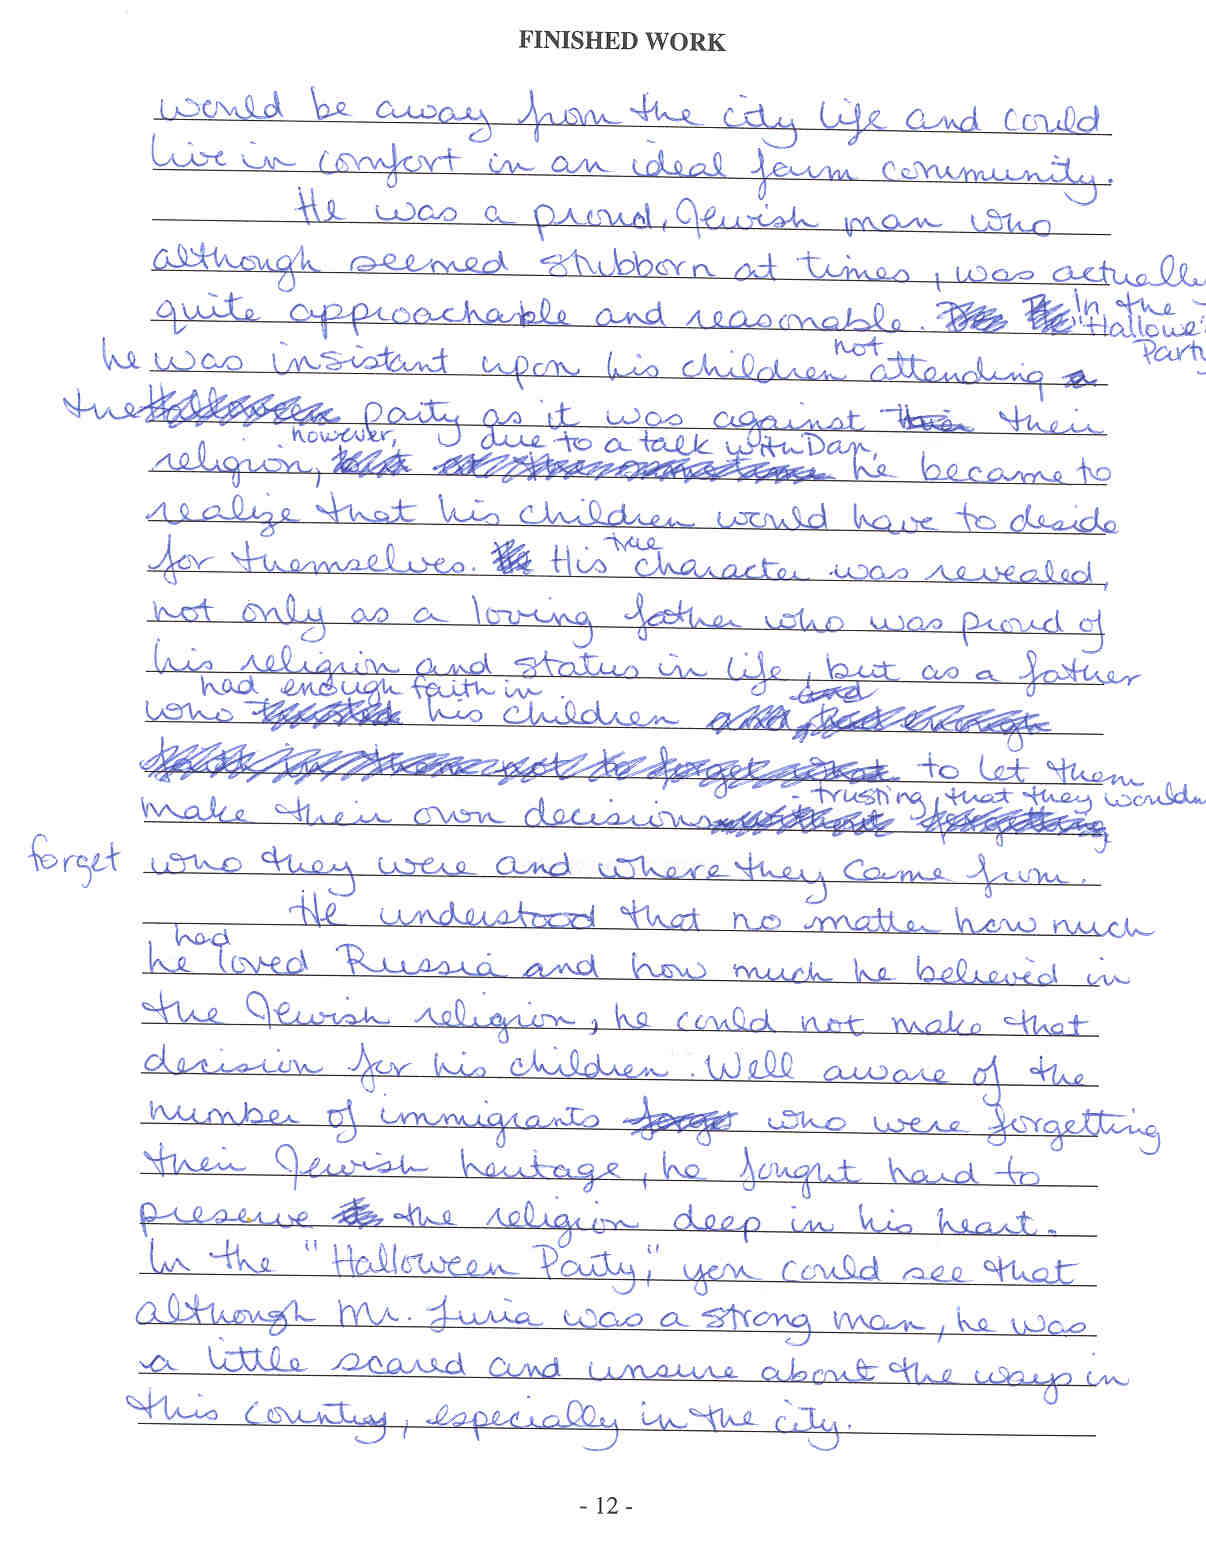 FINISHED WORK
would be away from the city life and could
live in comfort in an ideal farm community.
He was a proud, Jewish man who
although seemed stubborn at times, was actually
quite approachable and reasonable. In the
"Hallowe
Party
he was insistant upon his children not attending
the party as it was against their
religion, however, due to a talk with Dan, he became to
realize that his children would have to deside
for themselves. His true character was revealed,
not only as a loving father who was proud of
his religion and status in life, but as a father
who had enough faith in his children
to let them
make their own decisions - trusting, that they wouldn
forget who they were and where they came from.
He understood that no matter how much
he had loved Russia and how much he believed in
the Jewish religion, he could not make that
decision for his children. Well aware of the
number of immigrants who were forgetting
their Jewish heritage, he fought hard to
preserve the religion deep in his heart.
In the "Halloween Party," you could see that
although Mr. Luria was a strong man, he was
a little scared and unsure about the ways in
this country, especially in the city.
- 12 -